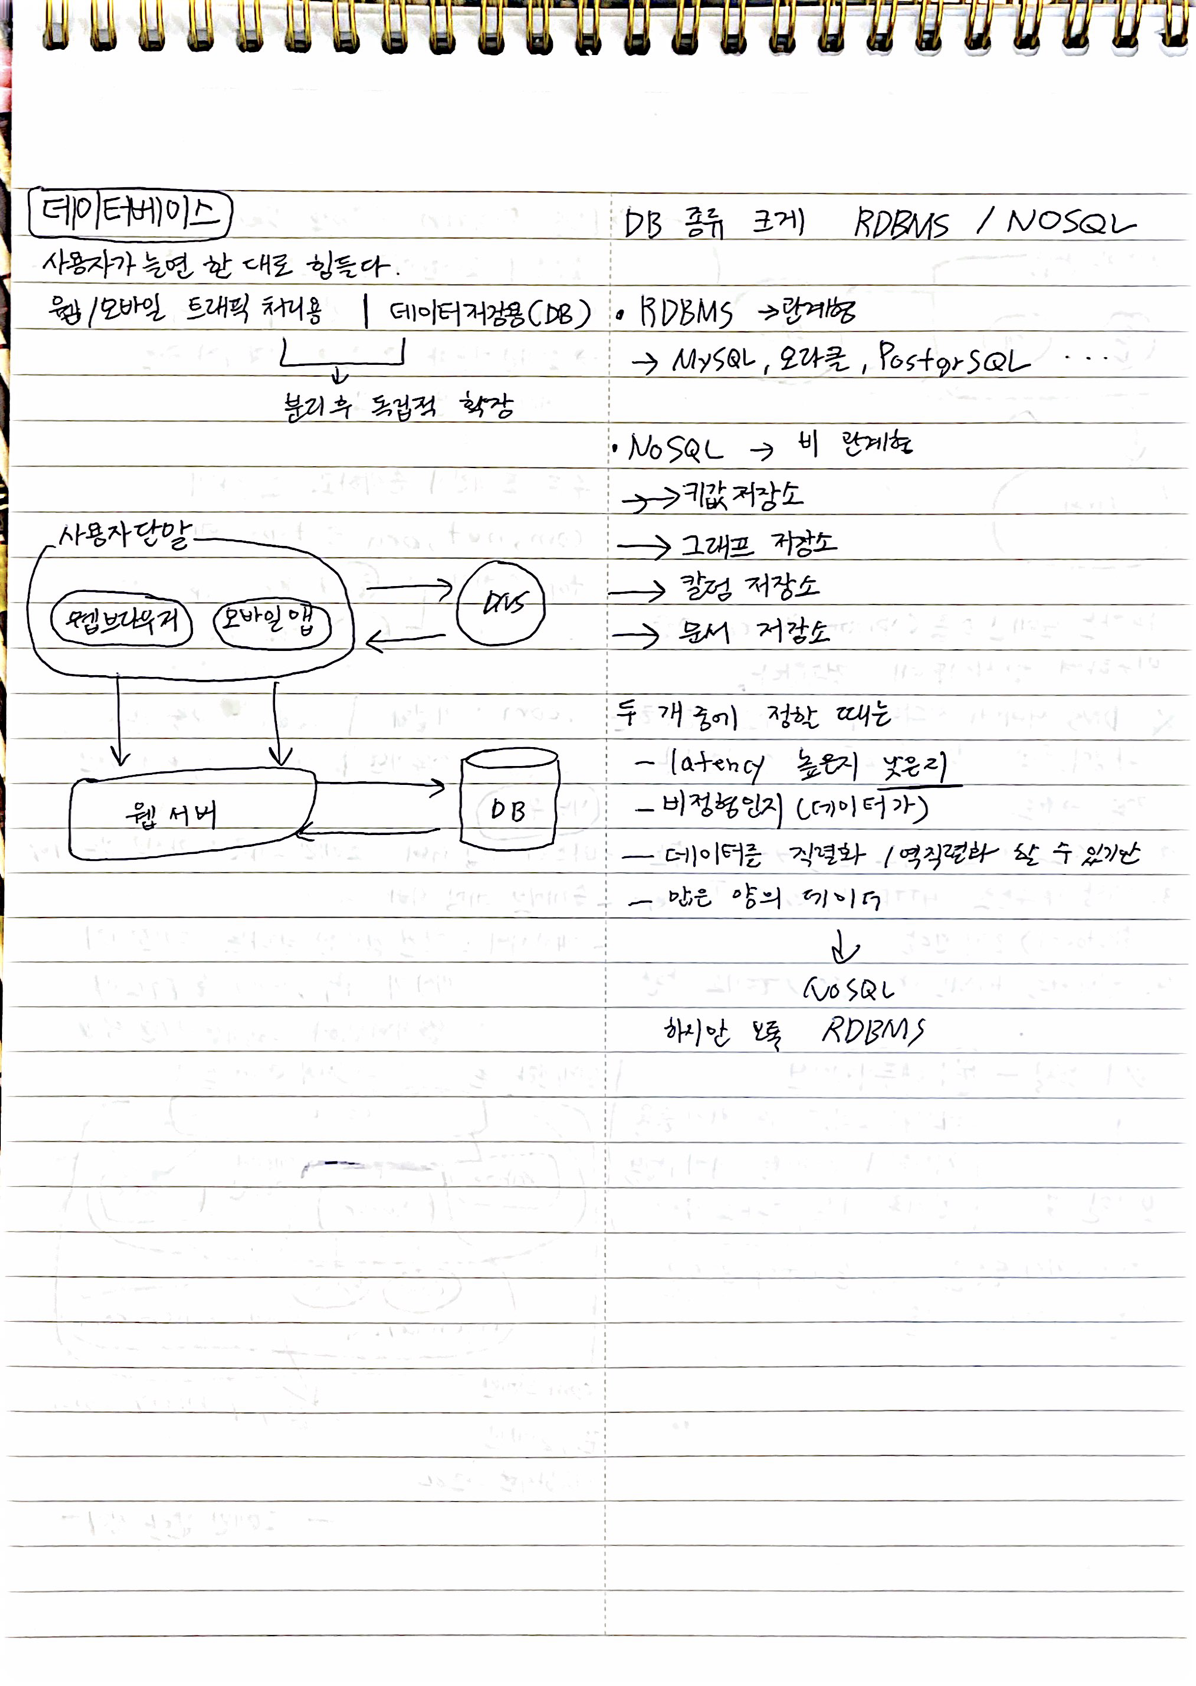 데이터베이스
사용자가 늘면 한 대로 힘들다.
웹/모바일 트래픽 처리용 | 데이터저장용(DB)
분리후 독립적 확장
사용자단말
웹브라우저 모바일앱
DNS
웹서버
DB
DB 종류 크게 RDBMS / NOSQL
• RDBMS →관계형
→ MySQL, 오라클, PostgrSQL ...
• NoSQL → 비 관계형
→→키값저장소
→ 그래프 저장소
→ 칼럼 저장소
→ 문서 저장소
두 개중에 정할 때는
- latency 높은지 낮은지
- 비정형인지 (데이터가)
- 데이터를 직렬화 /역직렬화 할 수 있기만
- 많은 양의 데이터
↓
NoSQL
하지만 보통 RDBMS